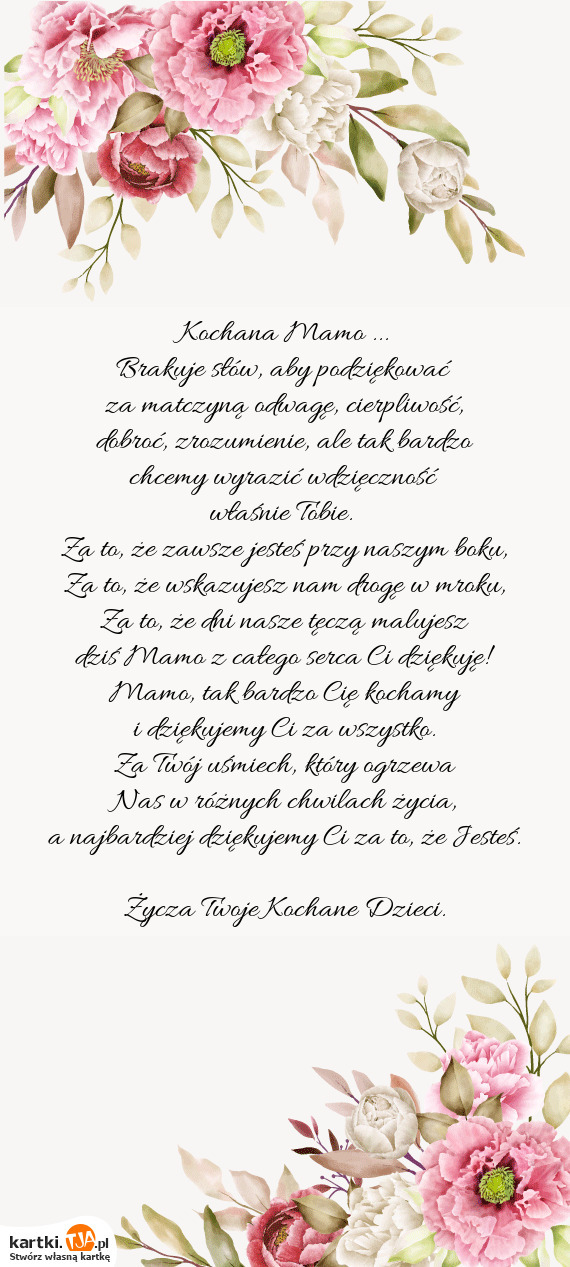 Kochana Mamo ...
Brakuje słów, aby podziękować
za matczyną odwagę, cierpliwość,
dobroć, zrozumienie, ale tak bardzo
chcemy wyrazić wdzięczność
właśnie Tobie.
Za to, że zawsze jesteś przy naszym boku,
Za to, że wskazujesz nam drogę w mroku,
Za to, że dni nasze tęczą malujesz
dziś Mamo z całego serca Ci dziękuję!
Mamo, tak bardzo Cię kochamy
i dziękujemy Ci za wszystko.
Za Twój uśmiech, który ogrzewa
Nas w różnych chwilach życia,
a najbardziej dziękujemy Ci za to, że Jesteś.
Życza Twoje Kochane Dzieci.
kartki.TJA.pl
Stwórz własną kartkę